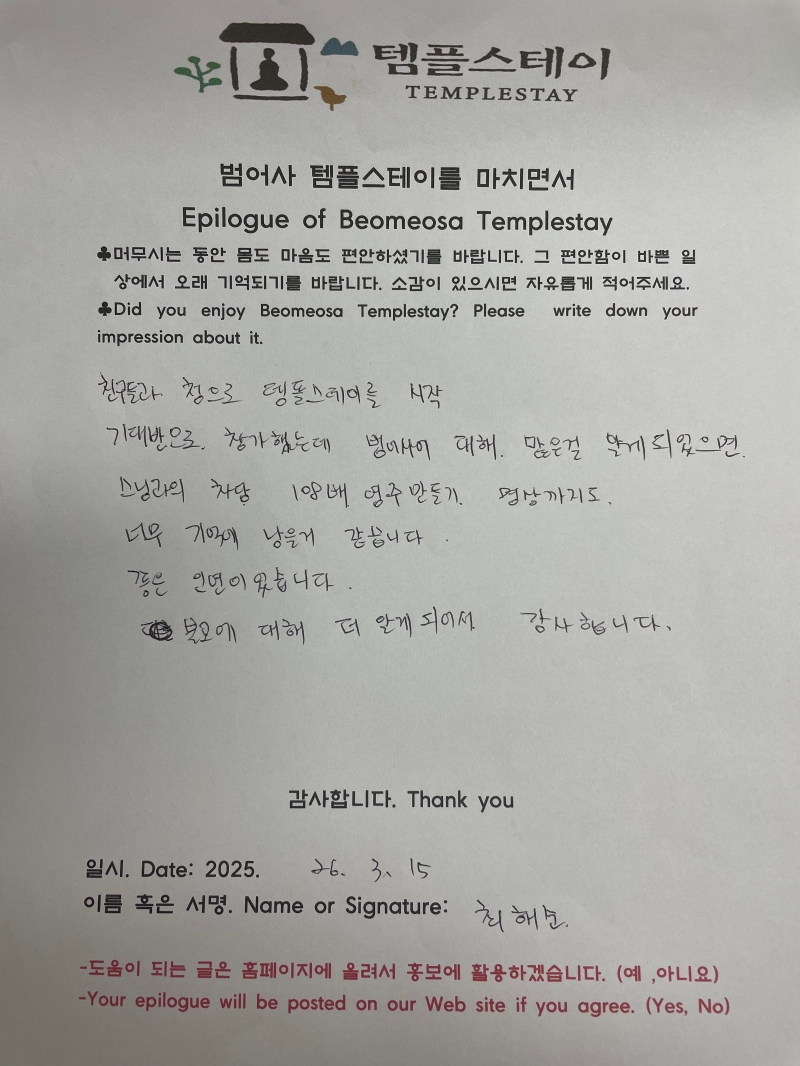 템플스테이
TEMPLESTAY
범어사 템플스테이를 마치면서
Epilogue of Beomeosa Templestay
♣머무시는 동안 몸도 마음도 편안하셨기를 바랍니다. 그 편안함이 바쁜 일
상에서 오래 기억되기를 바랍니다. 소감이 있으시면 자유롭게 적어주세요.
♣Did you enjoy Beomeosa Templestay? Please write down your
impression about it.
친구들과 첨으로 템플스테이를 시작
기대반으로. 참가했는데 범어사에 대해. 많은걸 알게되었으면.
스님과의 차담 108배 염주만들기. 명상까지도.
너무 기억에 남을거 같습니다.
인연이 있습니다.
불교에 대해 더 알게되어서 감사합니다.
감사합니다. Thank you
일시. Date: 2025. 26. 3. 15
이름 혹은 서명. Name or Signature: 최해
-도움이 되는 글은 홈페이지에 올려서 홍보에 활용하겠습니다. (예 ,아니요)
-Your epilogue will be posted on our Web site if you agree. (Yes, No)